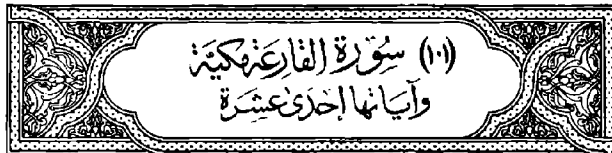 (١٠١) سُوْرَةُ القَارِعَةِ مَكِيَّة
وَآيَاتُهَا إحْدَىٰ عَشِرَة